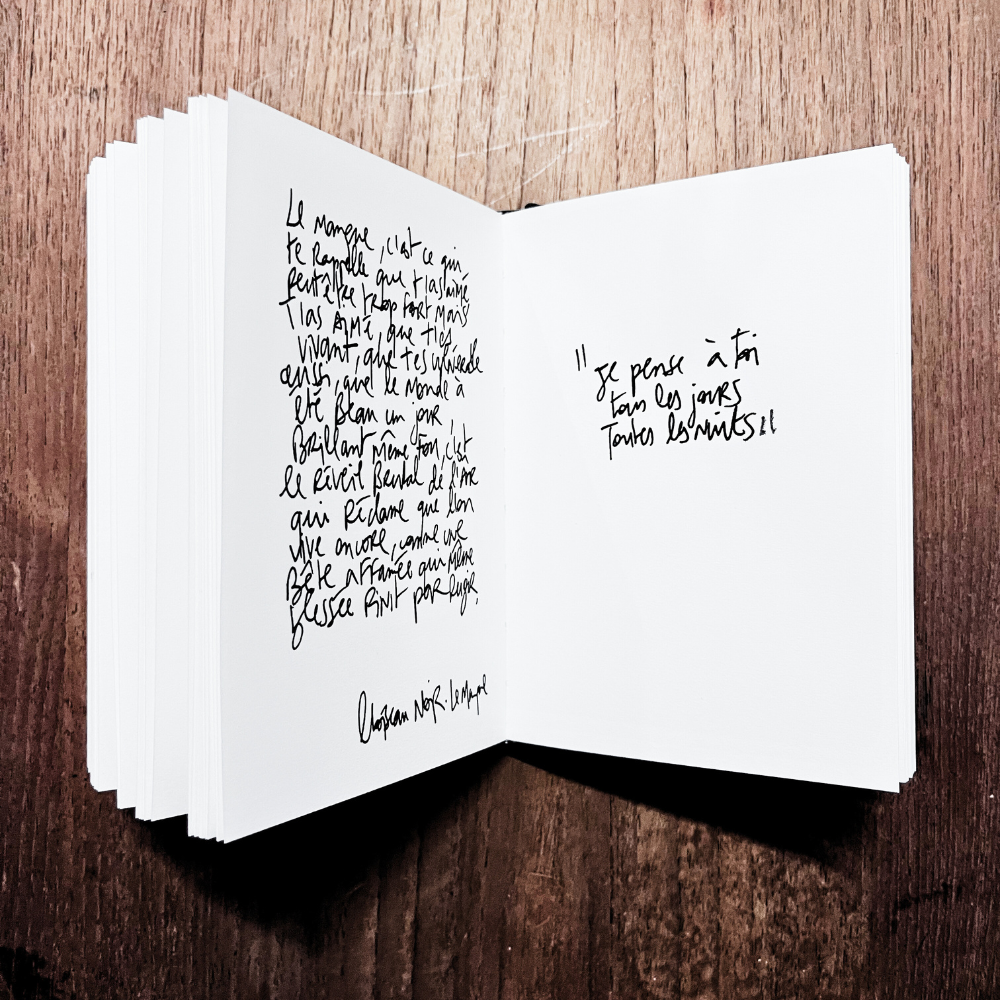 Le manque, c'est ce qui
te Rappelle que t'as aimé,
peut être trop fort mais
T'as AIMÉ, que t'es
vivant, que t'es vulnérable
aussi, que le Monde à
été Beau un jour,
Brillant même Fou, c'est
le Réveil Brutal de l'
qui Réclame que l'on
vive encore, comme une
Bête affamée qui même
blessée finit par Rugir.
Noir. Le Manque
"Je pense à toi
tous les jours
Toutes les nuits"